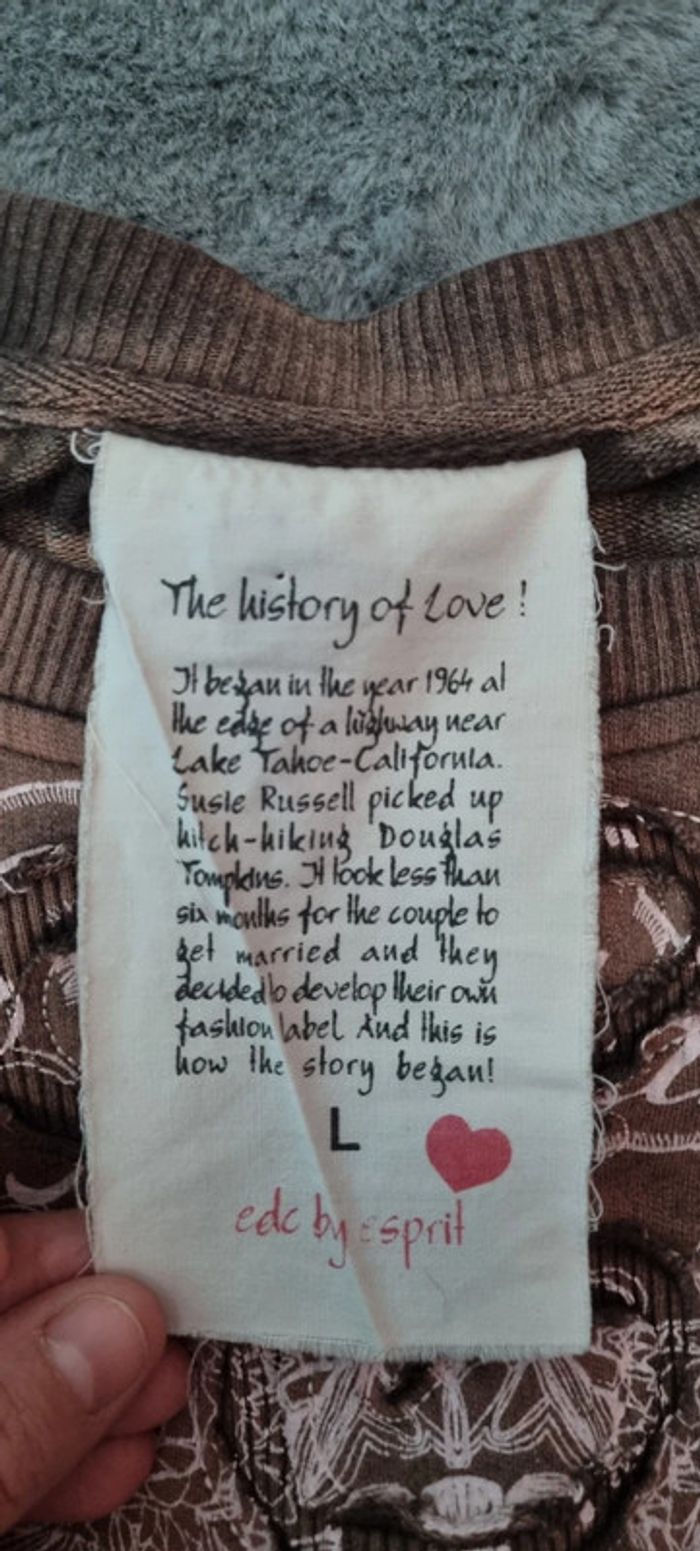 The history of Love !
It began in the year 1964 at
the edge of a highway near
Lake Tahoe-California.
Susie Russell picked up
hitch-hiking Douglas
Tompkins. It took less than
six months for the couple to
get married and they
decided to develop their own
fashion label And this is
how the story began!
L
edc by esprit